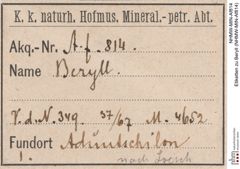 K. k. naturh. Hofmus. Mineral.-petr. Abt.
Akq.-Nr. A. f. 814.
Name Beryll.
V. d. N. 349. 37/67 M. 4652
Fundort Aduntschilon
1. nach Loesch
NHMW-MIN-Af814
Etiketten zu Beryll (NHMW-MIN-Af814)